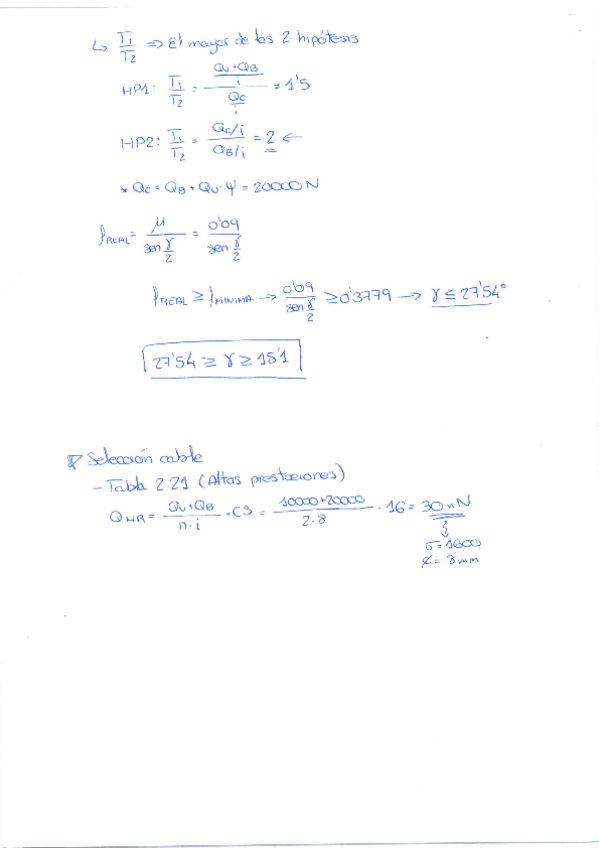 ↳ T1/T2 => El mayor de las 2 hipótesis
HP1: T1/T2 = ((Qu+QB)/i)/(Qc/i) = 1'5
HP2: T1/T2 = (Qc/i)/(QB/i) = 2 ←
* Qc = QB + Qu·Ψ = 20000 N
fREAL = μ/(sen γ/2) = 0'09/(sen γ/2)
fREAL ≥ fMINIMA → 0'09/(sen γ/2) ≥ 0'3779 → γ ≤ 27'54°
27'54 ≥ γ ≥ 15'1
Selección cable
- Tabla 2.21 (Altas prestaciones)
QMR = (Qu+QB)/(n·i) · CS = (10000+20000)/(2·8) · 16 = 30 kN
σ = 1600
∅ = 8 mm